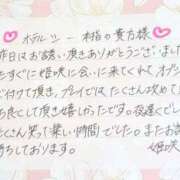 ホテルシー 本指の貴方様
昨日はお誘い頂きありがとうございました
たすぐに姫咲に会いに来てくれてオプシ
付けて頂き、プレイではたくさん攻めて
良くして頂き嬉しかったです。夜遅くでし
くさん笑って楽しい時間でした。またお誘
待ちしております。
姫咲